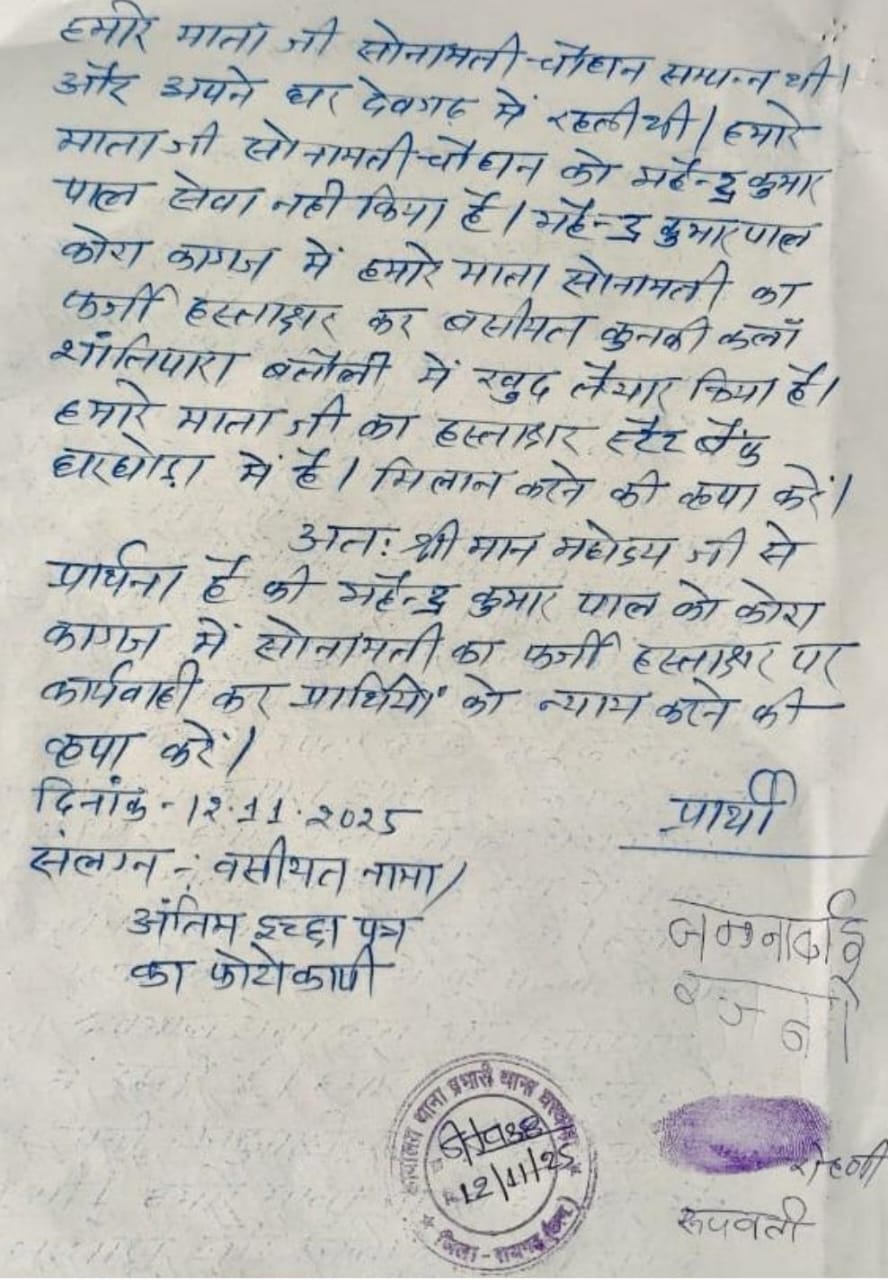 हमारे माता जी सोनामती चौहान सम्पन्न थी।
और अपने घर देवगढ़ में रहती थी। हमारे
माता जी सोनामती चौहान को महेन्द्र कुमार
पाल सेवा नही किया है। महेन्द्र कुमार पाल
कोरा कागज में हमारे माता सोनामती का
फर्जी हस्ताक्षर कर वसीयत कुनकी कलाँ
शांतिपारा बतौली में खुद तैयार किया है।
हमारे माता जी का हस्ताक्षर स्टेट बैंक
घरघोड़ा में है। मिलान करने की कृपा करें।
अतः श्री मान महोदय जी से
प्रार्थना है की महेन्द्र कुमार पाल को कोरा
कागज में सोनामती का फर्जी हस्ताक्षर पर
कार्यवाही कर प्रार्थियों को न्याय करने की
कृपा करें।
दिनांक - 12.11.2025
संलग्न -: वसीयत नामा/
अंतिम इच्छा पत्र
का फोटोकापी
प्रार्थी
रूपवती
कार्यालय थाना प्रभारी थाना घरघोड़ा
12/11/25
जिला - रायगढ़ (छ.ग.)